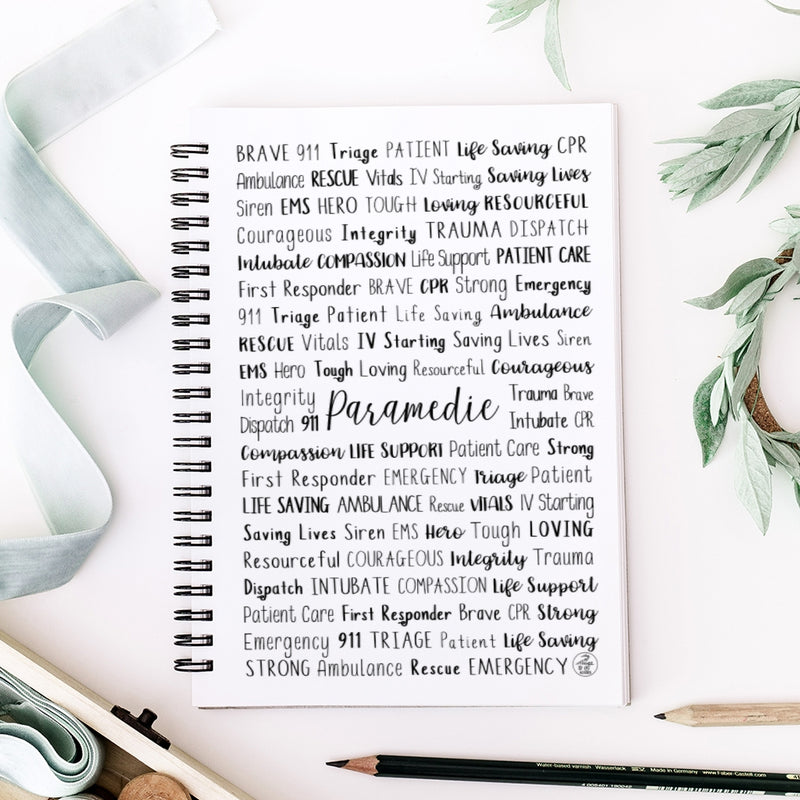 BRAVE 911 Triage PATIENT Life Saving CPR
Ambulance RESCUE Vitals IV Starting Saving Lives
Siren EMS HERO TOUGH Loving RESOURCEFUL
Courageous Integrity TRAUMA DISPATCH
Intubate COMPASSION Life Support PATIENT CARE
First Responder BRAVE CPR Strong Emergency
911 Triage Patient Life Saving Ambulance
RESCUE Vitals IV Starting Saving Lives Siren
EMS Hero Tough Loving Resourceful Courageous
Integrity
Dispatch 911
Paramedic
Trauma Brave
Intubate CPR
Compassion LIFE SUPPORT Patient Care Strong
First Responder EMERGENCY Triage Patient
LIFE SAVING AMBULANCE Rescue VITALS IV Starting
Saving Lives Siren EMS Hero Tough LOVING
Resourceful COURAGEOUS Integrity Trauma
Dispatch INTUBATE COMPASSION Life Support
Patient Care First Responder Brave CPR Strong
Emergency 911 TRIAGE Patient Life Saving
STRONG Ambulance Rescue EMERGENCY
Water-based varnish Wasserlack Made in Germany www.Faber-Castell.com